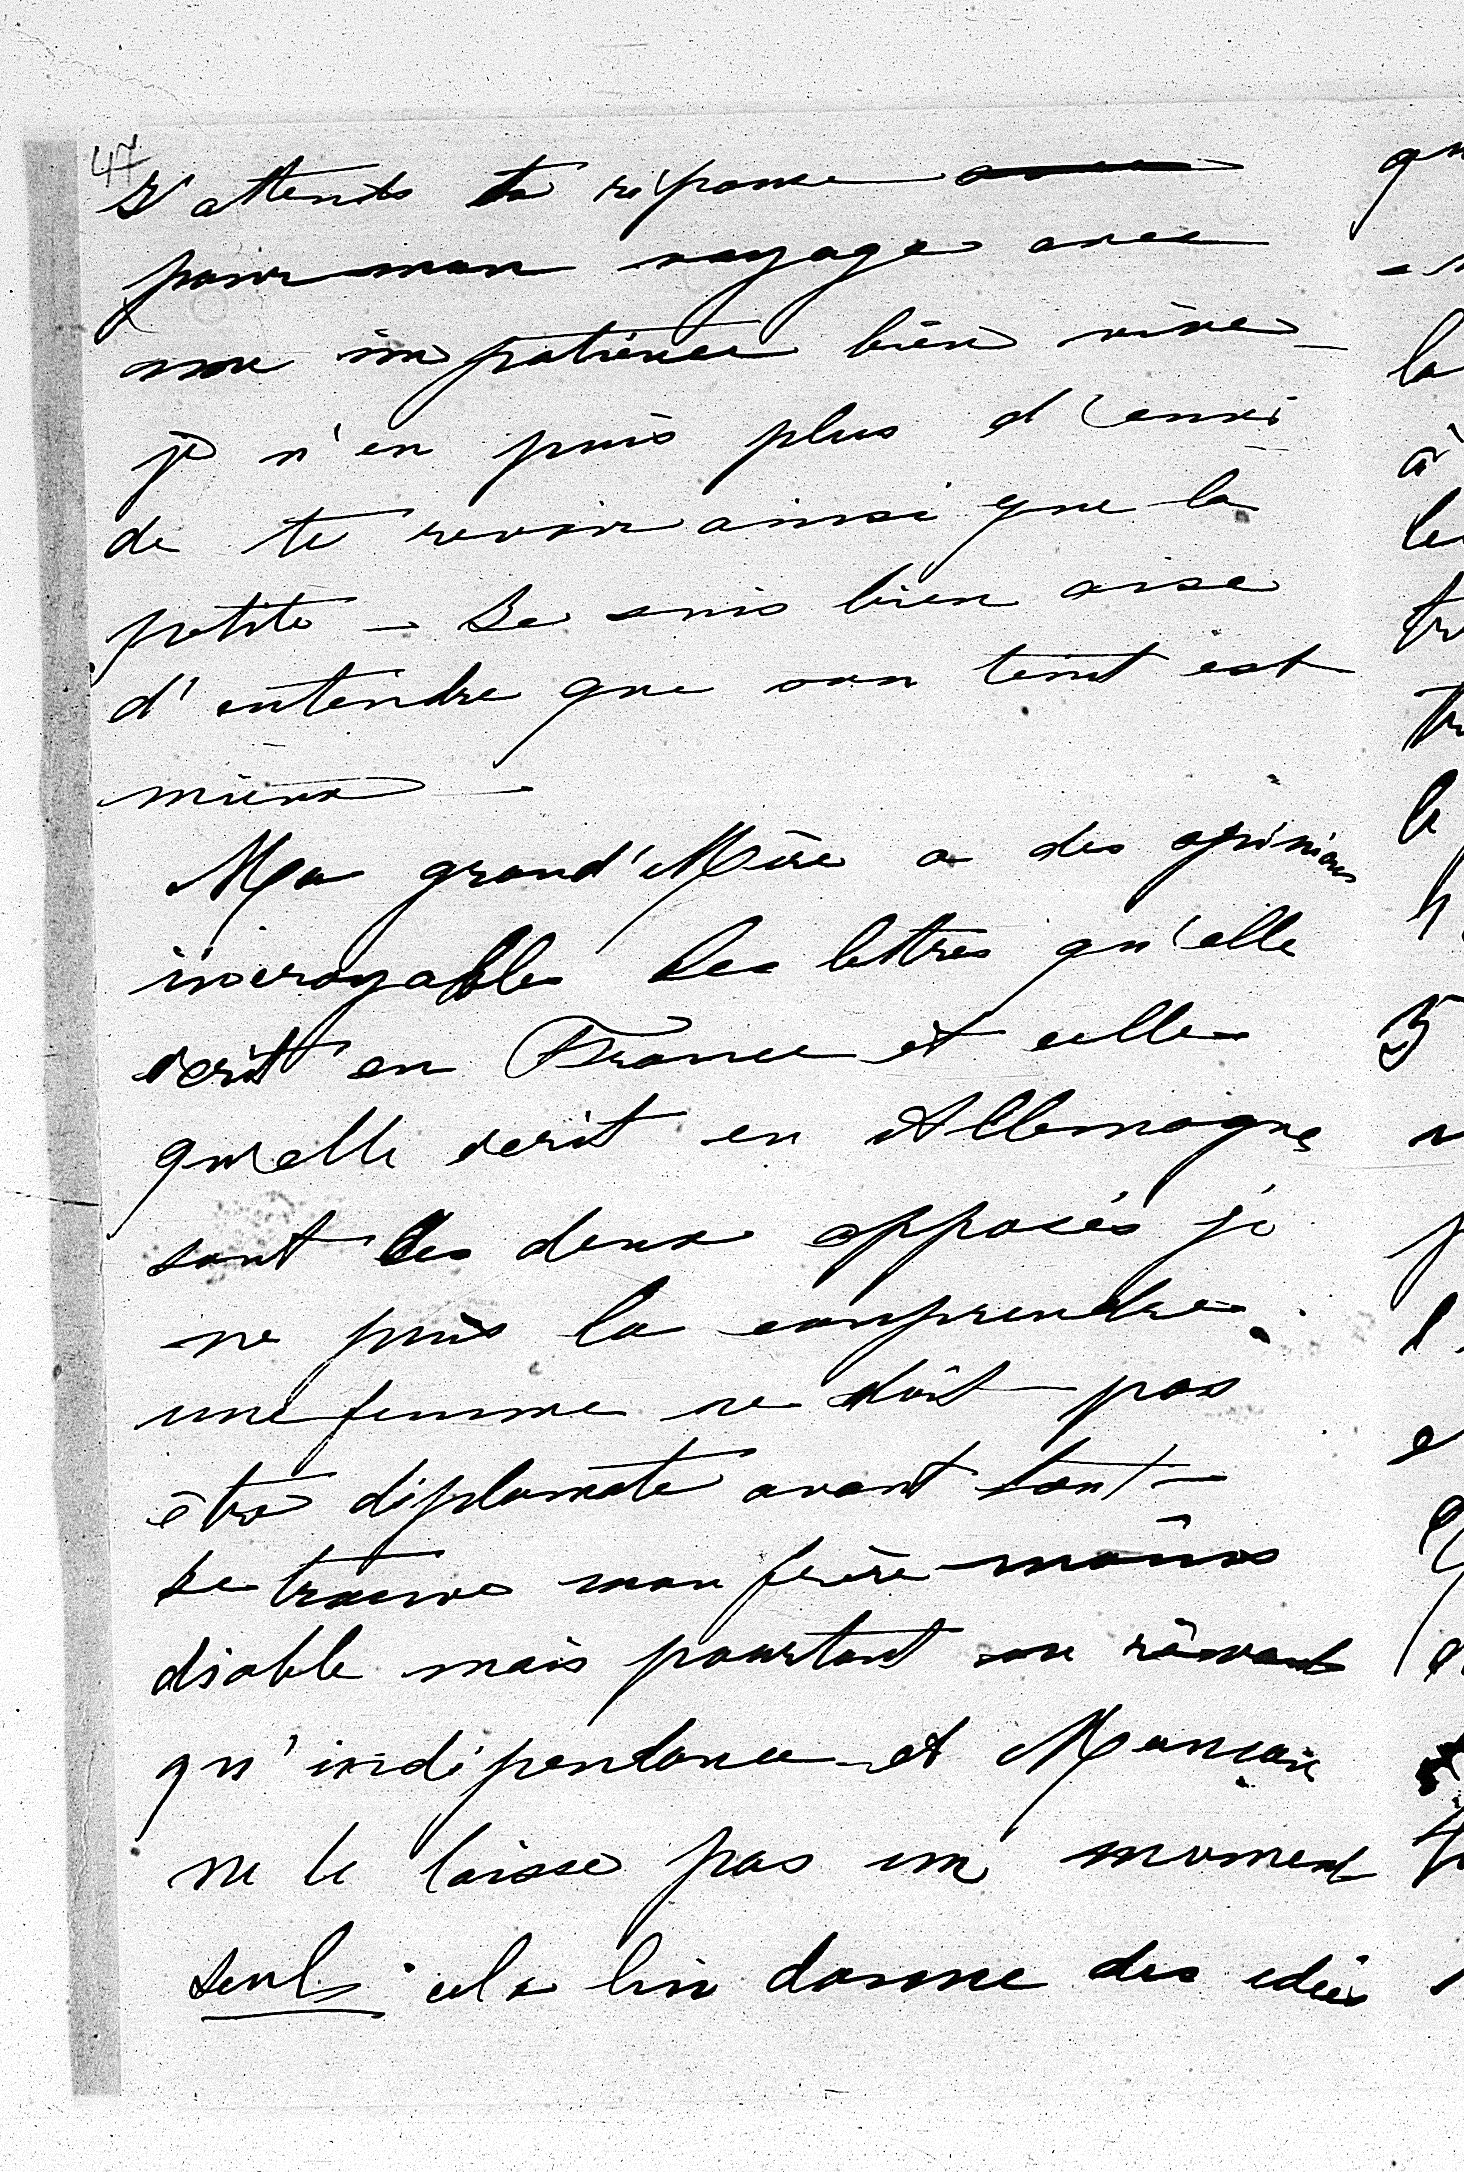 47
J'attends ta réponse
pour mon voyage avec
une impatience bien vive –
je n'en puis plus d'envi
de te revoir ainsi que la
petite – Je suis bien aise
d'entendre que son teint est
mieux –
Ma grand'Mère a des opinions
incroyables les lettres qu'elle
ecrit en France et celles
qu'elle ecrit en Allemagne
sont les deux opposés je
ne puis la comprendre.
une femme ne doit pas
être diplomate avant tout –
Je trouve mon frère moins
diable mais pourtant ne rêvant
qu'indépendance et Maman
ne le laisse pas un moment
seul. cela lui donne des idées
qu
la
à
le